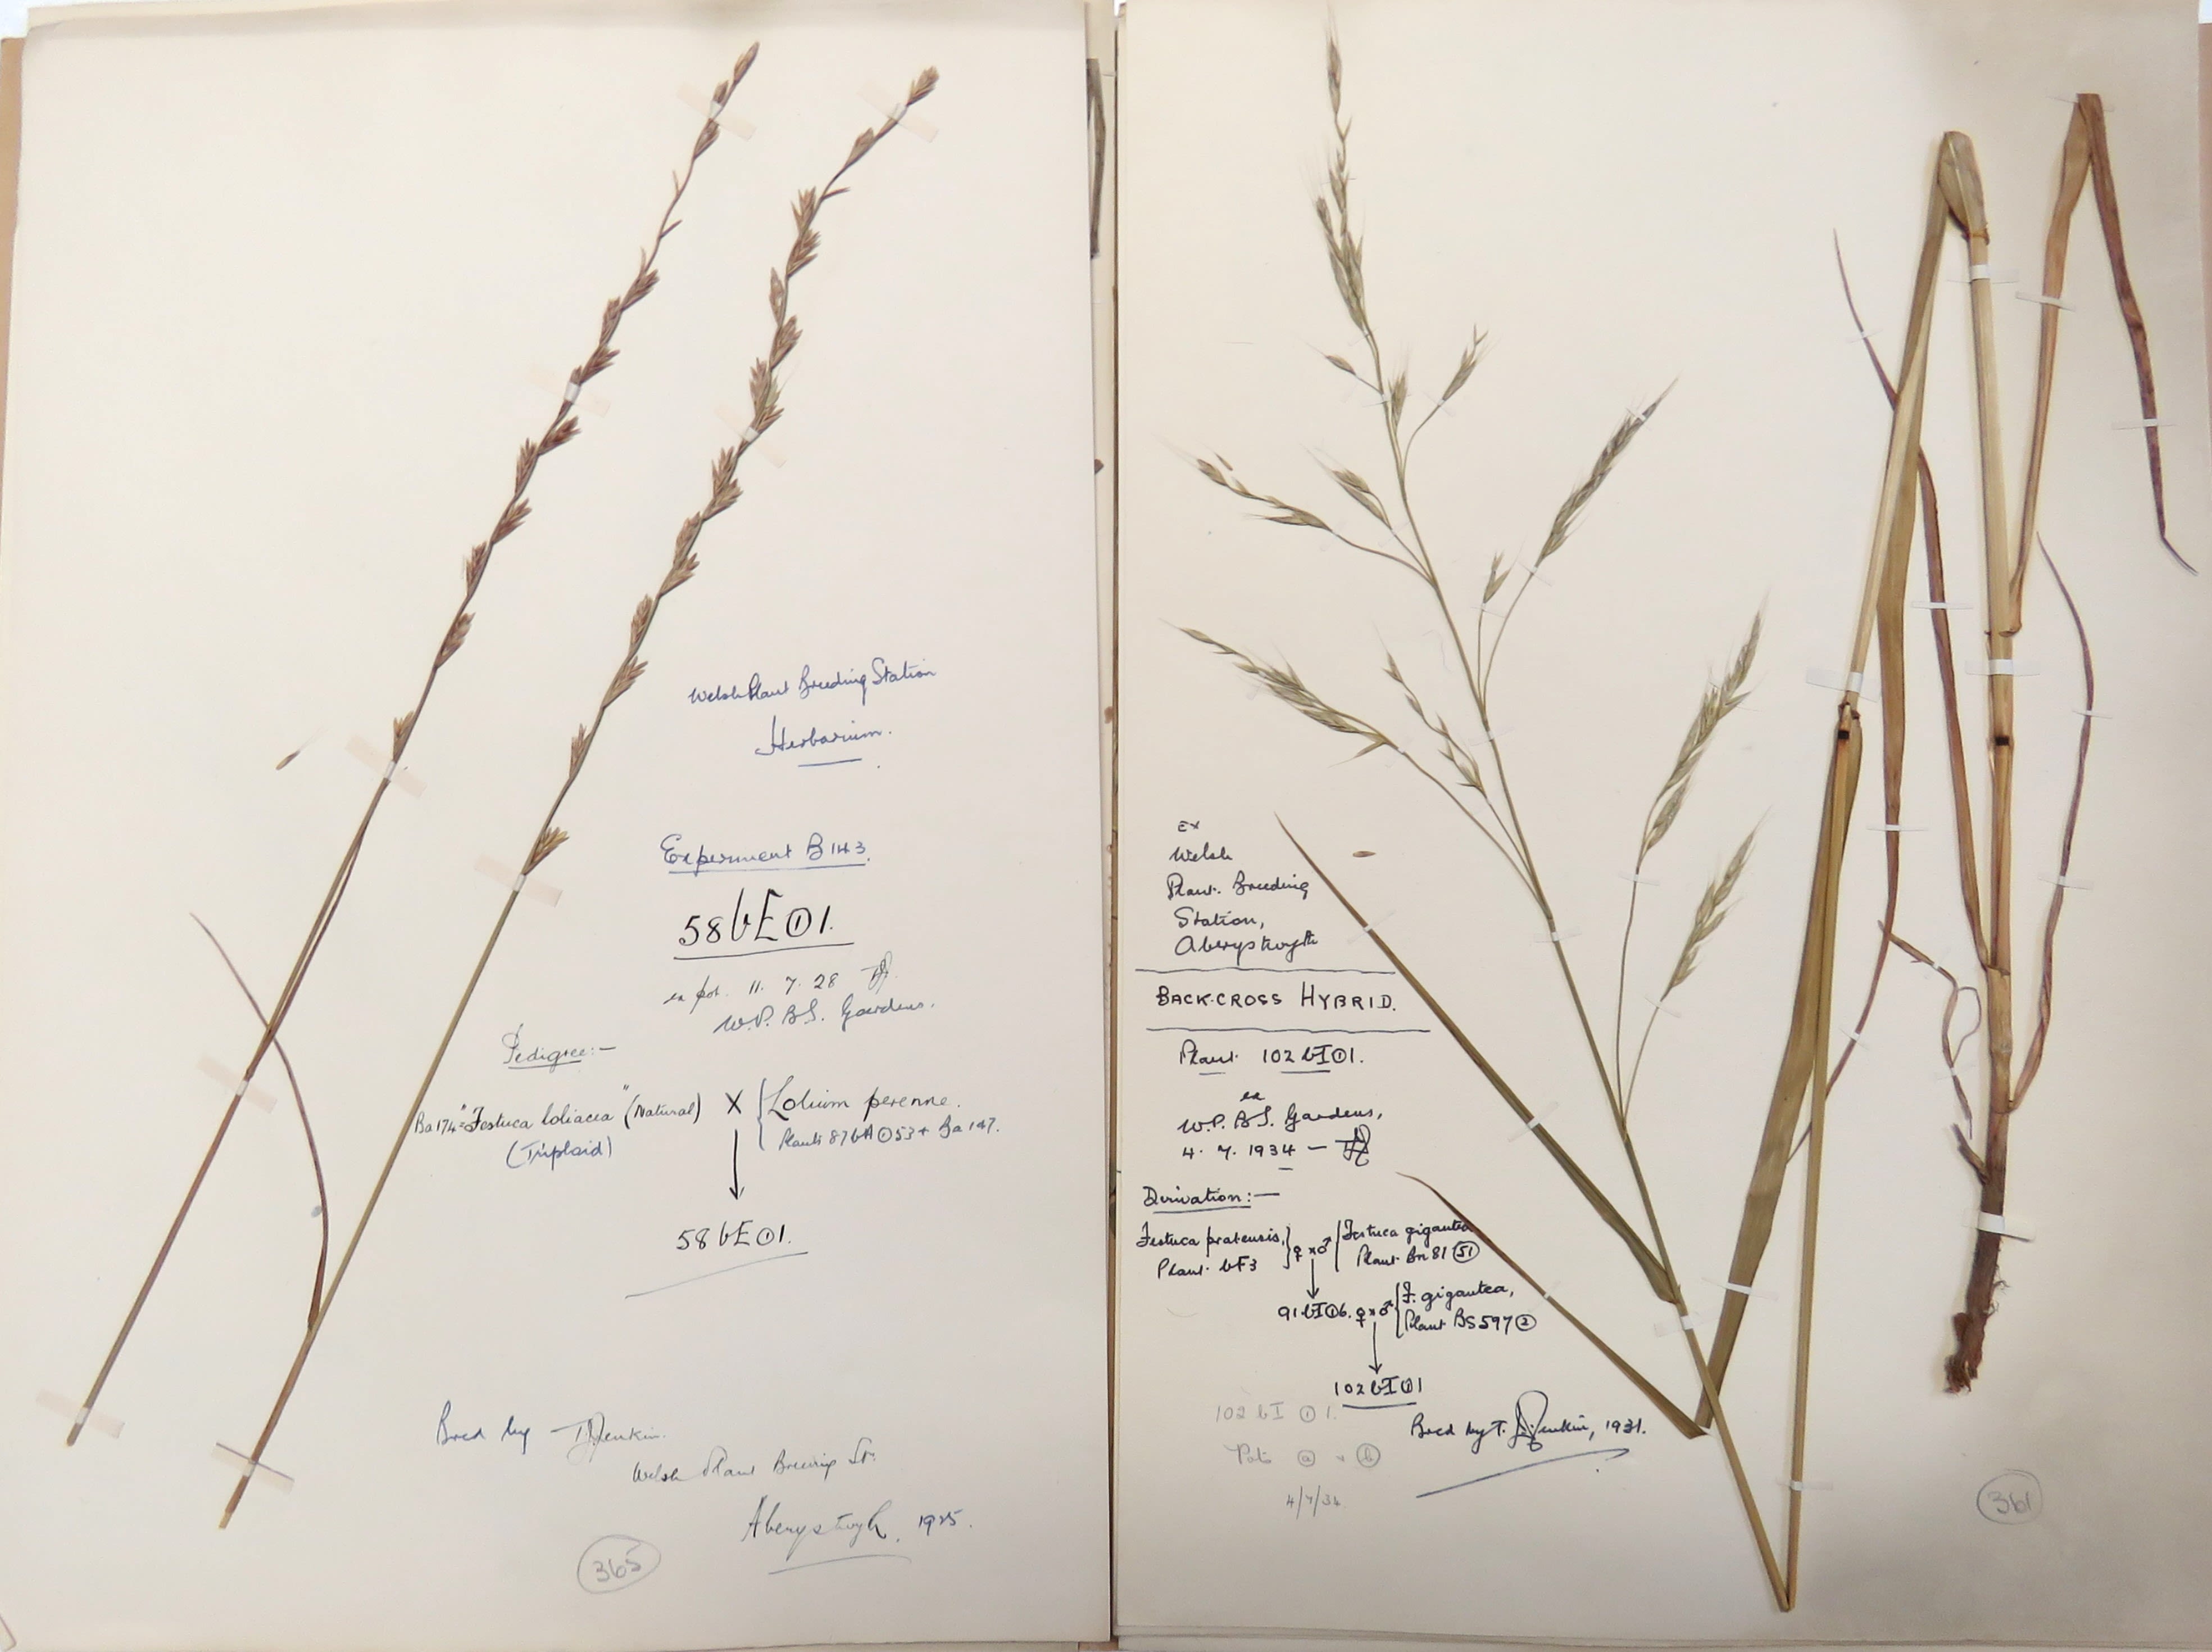 Welsh Plant Breeding Station
Herbarium.
Experiment B143.
58bE①1.
ex pot. 11. 7. 28 TJJ.
W.P.B.S. Gardens.
Pedigree:-
Ba174 "Festuca loliacea" (Natural) X { Lolium perenne.
(Triploid) Plants 87bA①53 + Ba147.
58bE①1.
Bred by T.J. Jenkin.
Welsh Plant Breeding St.
Aberystwyth, 1925.
365
Ex
Welsh
Plant Breeding
Station,
Aberystwyth
BACK-CROSS HYBRID.
Plant 102bI①1.
ex
W.P.B.S. Gardens,
4. 7. 1934 - TJJ
Derivation:-
Festuca pratensis, } ♀ x ♂ { Festuca gigantea
Plant bF3 Plant Bn81 (51)
91bI①6. ♀ x ♂ { F. gigantea,
Plant BS597②
102bI①1
102bI①1.
Bred by T. J. Jenkin, 1931.
Pots ⓐ + ⓑ
4/7/34
361